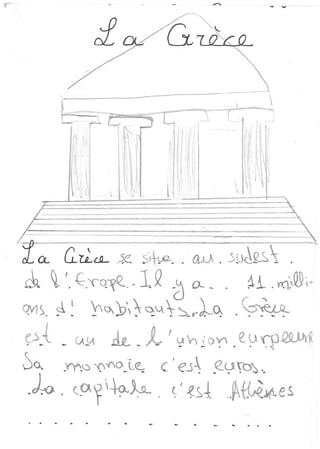 La Grèce
La Grèce se situe au sudest
de l'Erope. Il y a 11 milli-
ons d' habitants. La Grèce
est un de l'union eurpeenne
Sa monnaie c'est euros.
La capitale c'est Athènes